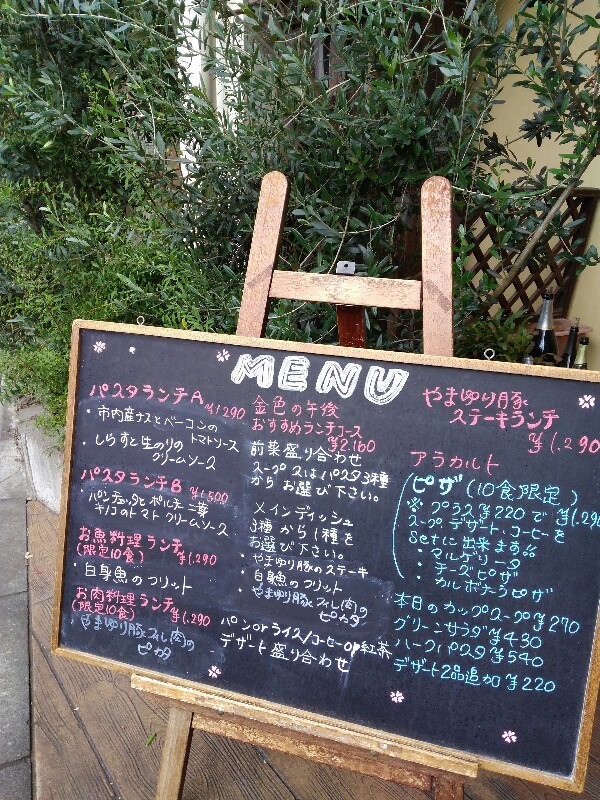 MENU
パスタランチA ¥1290
・市内産ナスとベーコンの
トマトソース
・しらすと生のりの
クリームソース
パスタランチB ¥1,500
・パンチェッタとポルチーニ茸
キノコのトマトクリームソース
お魚料理ランチ
(限定10食) ¥1,290
・白身魚のフリット
お肉料理ランチ
(限定10食) ¥1,290
・やまゆり豚フィレ(肉)の
ピカタ
金色の午後
おすすめランチコース
¥2,160
前菜盛り合わせ
スープ又はパスタ3種
からお選び下さい。
メインディッシュ
3種から1種を
お選び下さい。
・やまゆり豚のステーキ
・白身魚のフリット
・やまゆり豚フィレ(肉)の
ピカタ
パンorライス/コーヒーor紅茶
デザート盛り合わせ
やまゆり豚
ステーキランチ
¥1,290
アラカルト
ピザ(10食限定)
※プラス¥220で
スープ デザート・コーヒーを
Setに出来ます!!
・マルゲリータ
・チーズピザ
・カルボナーラピザ
本日のカップスープ¥270
グリーンサラダ¥430
ハーフパスタ¥540
デザート2品追加¥220